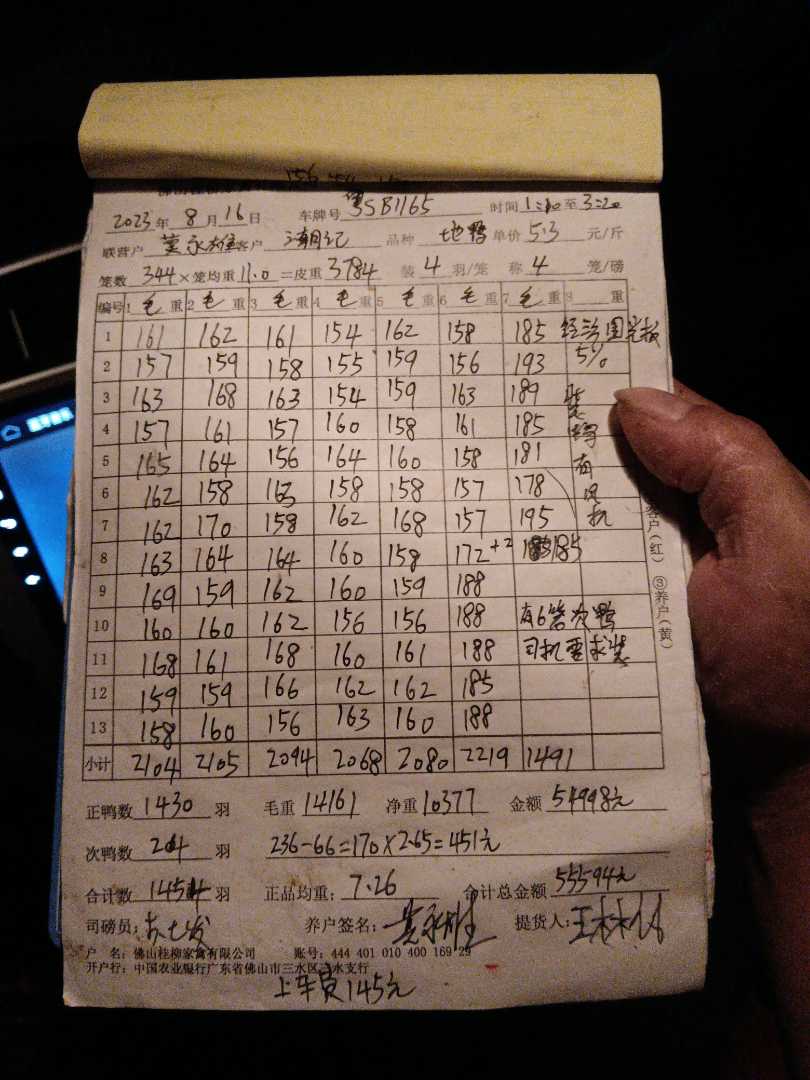 2023年 8月16日 车牌号 粤SB1165 时间1:20至3:20
联营户 黄永雄 客户 潮记 品种 地鸭 单价 5.3 元/斤
笼数 344×笼均重11.0=皮重3784 装4羽/笼 称4笼/磅
编号 1毛重 2毛重 3毛重 4毛重 5毛重 6毛重 7毛重 8 重
1 161 162 161 154 162 158 185
2 157 159 158 155 159 156 193 5%
3 163 168 163 154 159 163 189
4 157 161 157 160 158 161 185
5 165 164 156 164 160 158 181
6 162 158 163 158 158 157 178
7 162 170 158 162 168 157 195
8 163 164 164 160 158 172+2 185
9 169 159 162 160 159 188
10 160 160 162 156 156 188 有6笼次鸭
11 168 161 168 160 161 188 司机要求装
12 159 159 166 162 162 185
13 158 160 156 163 160 188
小计 2104 2105 2094 2068 2080 2219 1491
客户(红) ③养户(黄)
正鸭数 1430 羽 毛重 14161 净重 10377 金额 54998元
次鸭数 24 羽 236-66=170×2.65=451元
合计数 1454 羽 正品均重: 7.26 合计总金额 55594元
司磅员: 养户签名: 提货人:
户 名: 佛山桂柳家禽有限公司 账号: 444 401 010 400 169 29
开户行: 中国农业银行广东省佛山市三水区三水支行
上车费145元